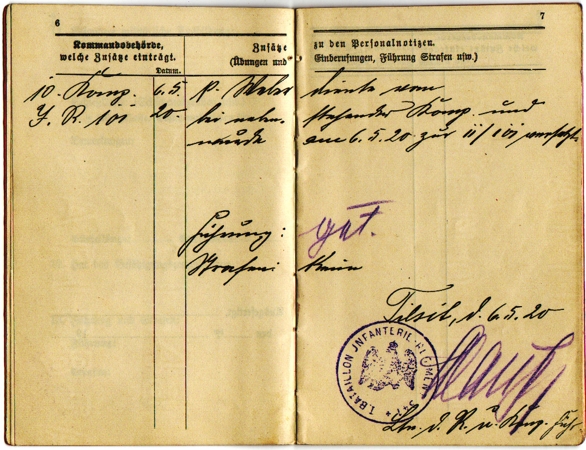 6
7
Kommandobehörde,
welche Zusätze einträgt.
Datum.
Zusätze
(Übungen und
zu den Personalnotizen.
Einberufungen, Führung Strafen usw.)
10. Komp. 6.5. P. Weber diente von
J. R. 101 20. bei neben stehender Komp. und
wurde am 6.5.20 zur 11/101 versetzt
Führung: gut.
Strafen: keine
Tilsit, d. 6.5.20
I. BATAILLON INFANTERIE-
Ltn. d. R. u. Komp. Führ.